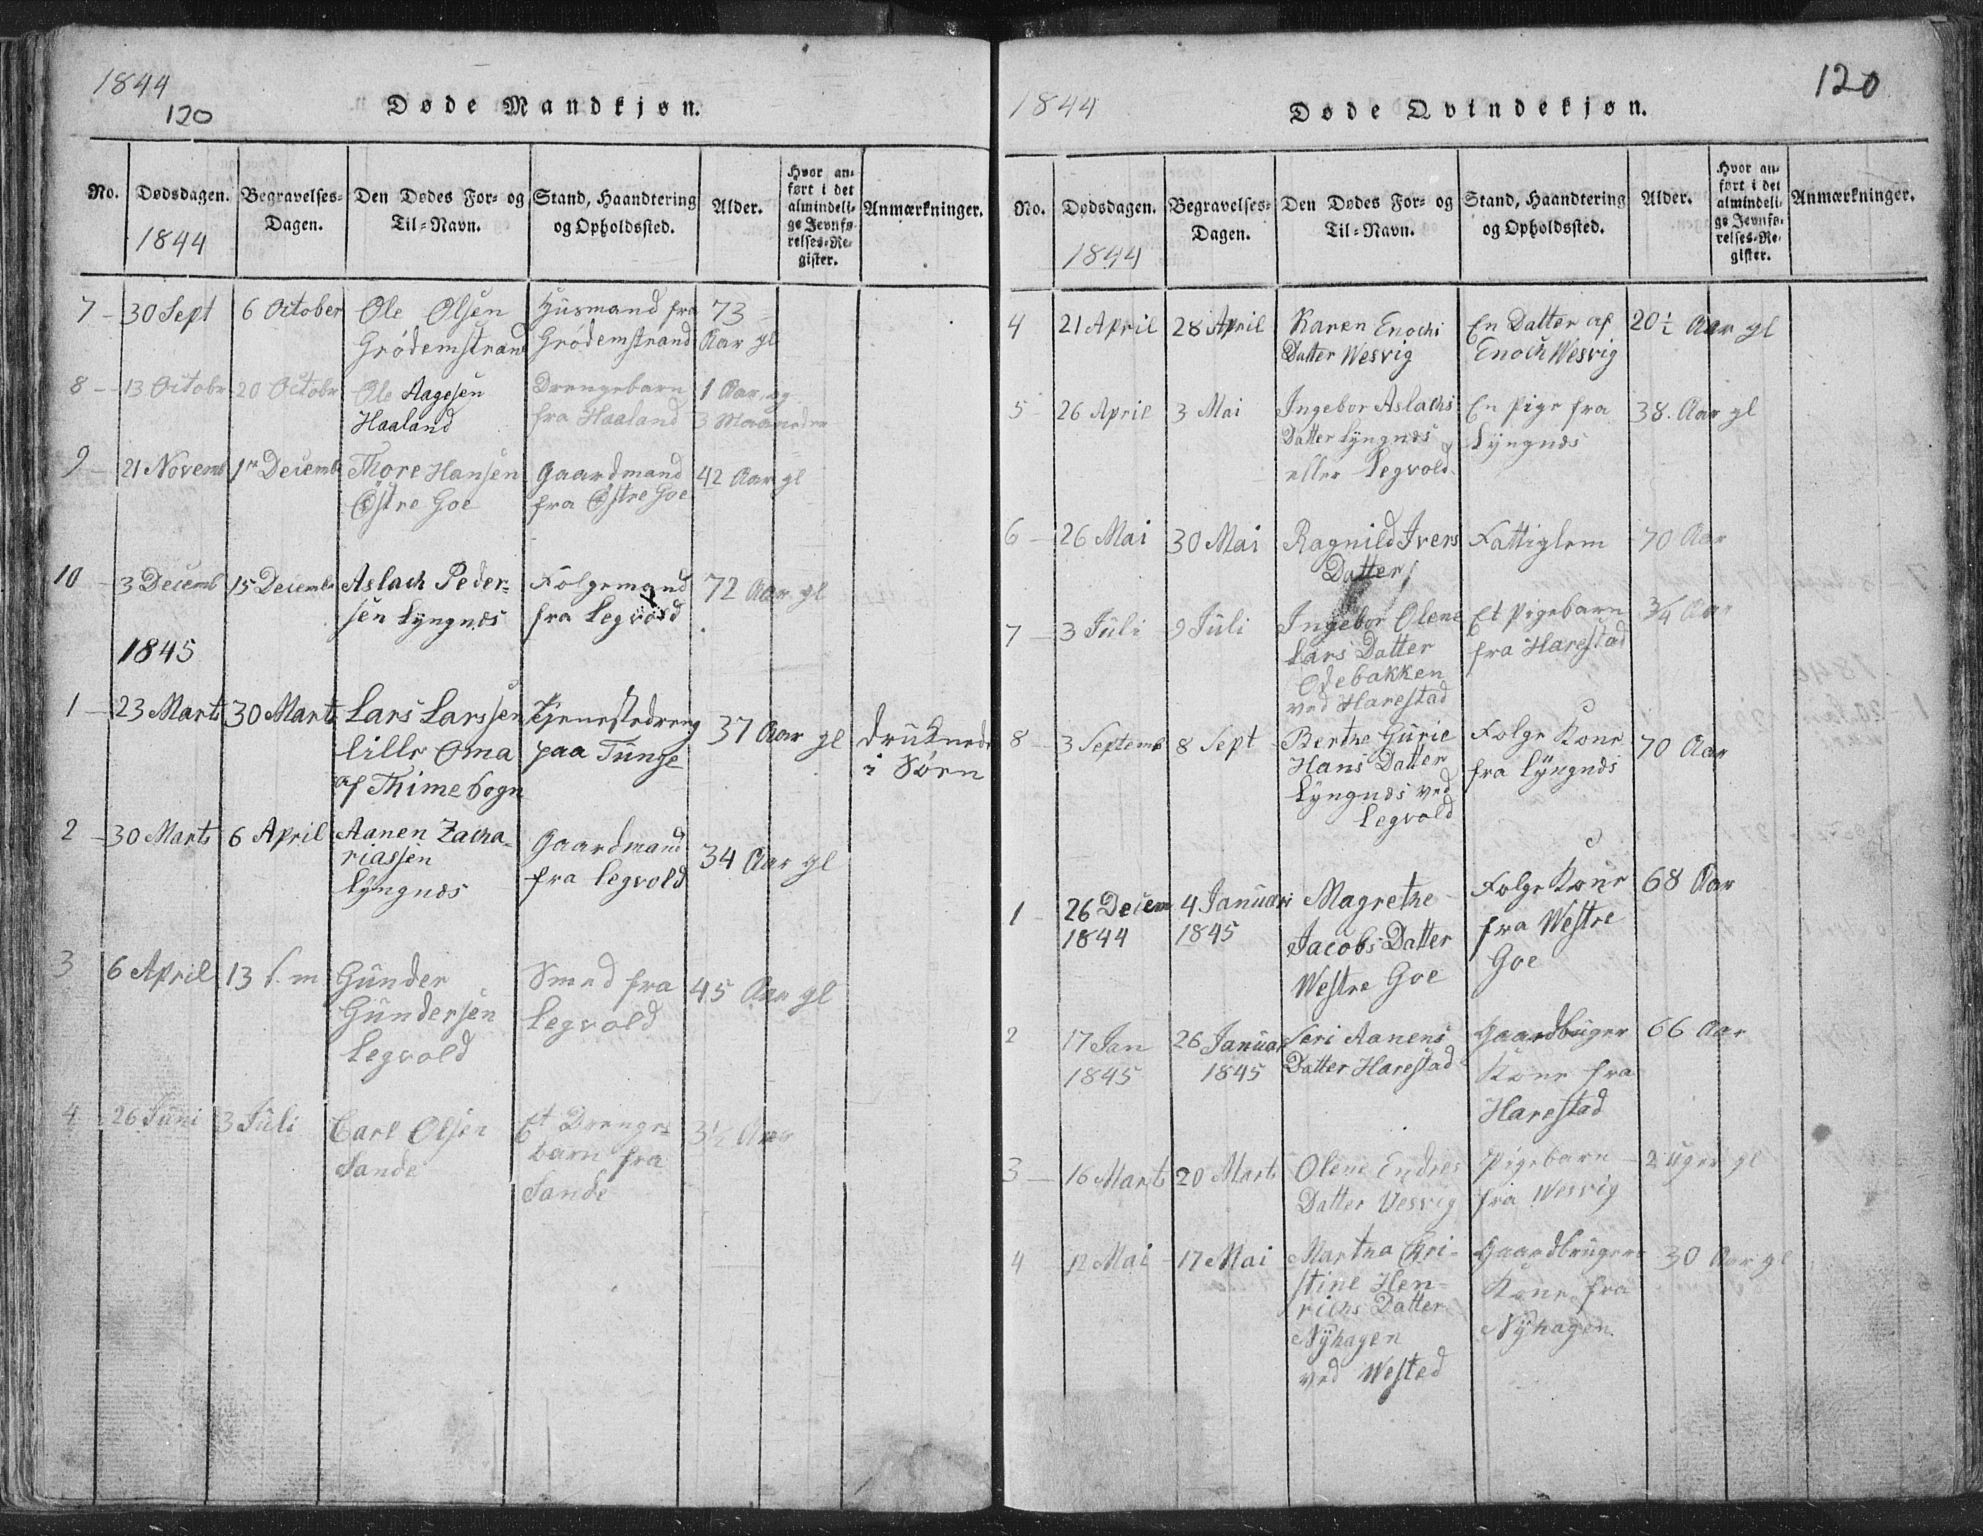 1844
120
Døde Mandkjøn.
No. Dødsdagen. Begravelses-Dagen. Den Dødes For- og Til-Navn. Stand, Haandtering og Opholdssted. Alder. Hvor anført i det almindelige Jevnførelses-Register. Anmærkninger.
1844
7 - 30 Sept 6 October Ole Olsen Husmand fra 73
Grödemstrand Grödemstrand Aar gl
8 - 13 Octobr 20 Octobr Ole Aagesen Drengebarn 1 Aar og
Haaland fra Haaland 3 Maaneder
9 - 21 Novemb 1ste Decemb Thore Hansen Gaardmand 42 Aar gl
Østre Goe fra Østre Goe
10 - 3 Decemb 15 Decembr Aslach Peder- Folgemand 72 Aar gl
sen Lyngnæs fra Legvold
1845
1 - 23 Marts 30 Marts Lars Larssen Tjenestedreng 37 Aar gl druknede
lille Oma paa Tunge i Söen
af Thime sogn
2 - 30 Marts 6 April Aanen Zacha- Gaardmand 34 Aar gl
riassen fra Legvold
Lyngnæs
3 6 April 13 s. m Gunder Smed fra 45 Aar gl
Gundersen Legvold
Legvold
4 26 Juni 3 Juli Carl Olsen Et Drenge- 3½ Aar
Sande barn fra
Sande
1844
120
Døde Qvindekjøn.
No. Dødsdagen. Begravelses-Dagen. Den Dødes For- og Til-Navn. Stand, Haandtering og Opholdssted. Alder. Hvor anført i det almindelige Jevnførelses-Register. Anmærkninger.
1844
4 21 April 28 April Karen Enochs En Datter af 20½ Aar gl
Datter Wesvig Enoch Wesvig
5 - 26 April 3 Mai Ingebor Aslachs En Pige fra 38 Aar gl
Datter Lyngnæs Lyngnæs
eller Legvold
6 - 26 Mai 30 Mai Ragnild Ivers Fattiglem 70 Aar
Datter
7 - 3 Juli 9 Juli Ingebor Olene Et Pigebarn ¾ Aar
Lars Datter fra Harestad
Odebakken
ved Harestad
8 - 3 Septemb 8 Sept Berthe Gurie Folge Kone 70 Aar
Hans Datter fra Lyngnæs
Lyngnæs ved
Legvold
1 - 26 Decem 4 Januari Magrethe Folge Kone 68 Aar
1844 1845 Jacobs Datter fra Westre
Westre Goe Goe
2 17 Jan 26 Januar Seri Aanens Gaardbruger 66 Aar
1845 1845 Datter Harestad Kone fra
Harestad
3 - 16 Marts 20 Marts Olene Endres Pigebarn 2 Uger gl
Datter Vesvig fra Wesvig
4 12 Mai 17 Mai Martha Chri- Gaardbrugers 30 Aar gl
stine Hen- Kone fra
richs Datter Nyhagen
Nyhagen
ved Wested